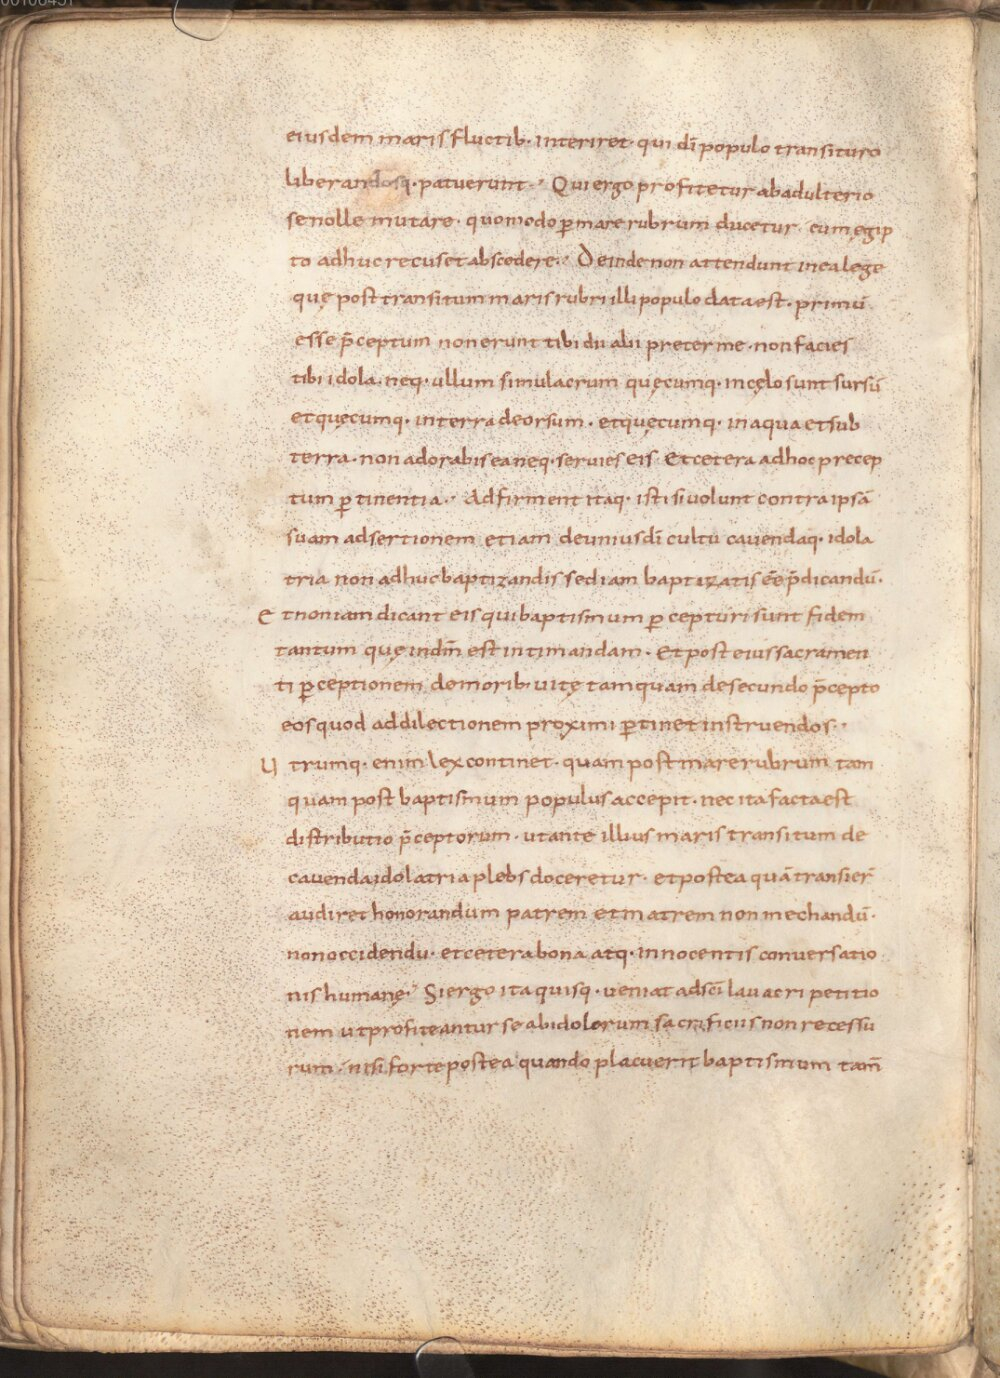 eiusdem maris fluctib· interiret· qui dī populo transituro
liberandosq·patuerunt·' Qui ergo profitetur ab adulterio
se nolle mutare· quomodo ꝑ mare rubrum ducetur· cum egip
to adhuc recuset abscedere·' Deinde non attendunt in ea lege
quę post transitum maris rubri illi populo data est· primū
esse p̄ceptum non erunt tibi dii alii preter me· non facies
tibi idola· neq· ullum simulacrum quęcumq· in cęlo sunt sursū
et quęcumq· in terra deorsum· et quęcumq· in aqua et sub
terra· non adorabis ea neq· servies eis· Et cetera ad hoc precep
tum ꝑtinentia·' Adfirment itaq· isti si volunt contra ipsā
suam adsertionem etiam de unius dī cultu cavendaq· idola
tria non adhuc baptizandis sed iam baptizatis eē p̄dicandū·
Et non iam dicant eis qui baptismum ꝑcepturi sunt fidem
tantum quę in dm̄ est intimandam· Et post eius sacramen
ti ꝑceptionem de morib· vitę tamquam de secundo p̄cepto
eos quod ad dilectionem proximi ꝑtinet instruendos·'
Utrumq· enim lex continet· quam post mare rubrum tam
quam post baptismum populus accepit· nec ita facta est
distributio p̄ceptorum· ut ante illius maris transitum de
cavenda idolatria plebs doceretur· et postea quā transier̄
audiret honorandum patrem et matrem non mechandū·
non occidendū· et cetera bona atq· innocentis conversatio
nis humanę·' Si ergo ita quisq· veniat ad sc̄i lavacri petitio
nem ut profiteantur se ab idolorum sacrificiis non recessu
rum· nisi forte postea quando placuerit baptismum tam̄